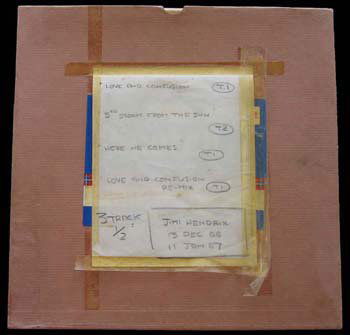 LOVE AND CONFUSION T.1
3RD STONE FROM THE SUN
T.2
HERE HE COMES T.1
LOVE AND CONFUSION
RE-MIX T.1
3 TRACK
1/2"
JIMI HENDRIX
13 DEC 66
11 JAN 67